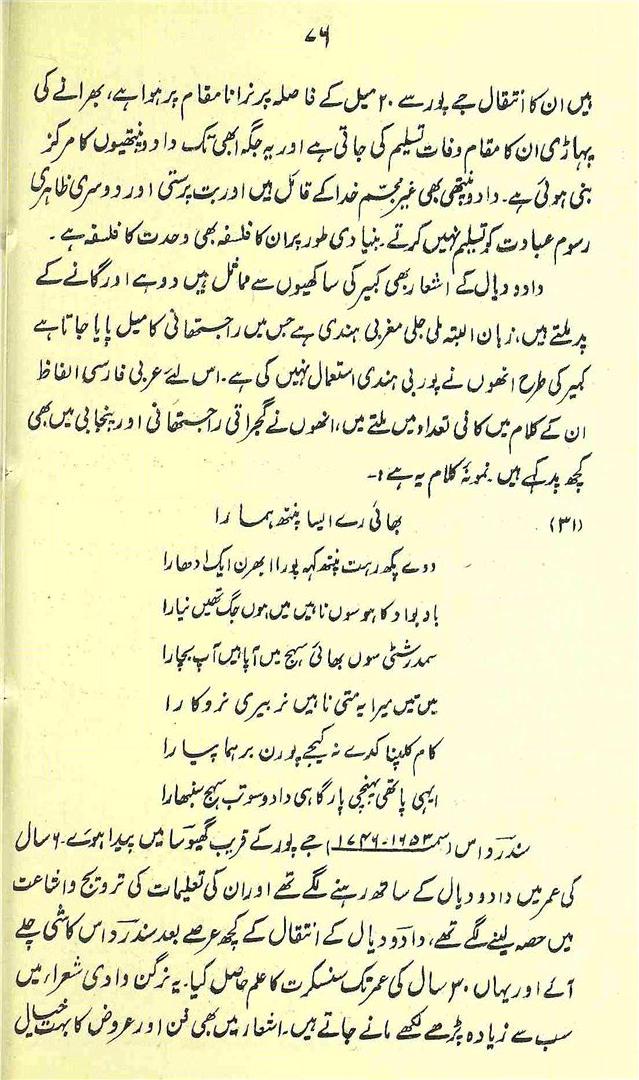 ۷۶
ہیں ان کا انتقال جے پور سے ۲۰ میل کے فاصلہ پر نرانا مقام پر ہوا ہے، بھرانے کی
پہاڑی ان کا مقام وفات تسلیم کی جاتی ہے اور یہ جگہ ابھی تک دادو پنتھیوں کا مرکز
بنی ہوئی ہے۔ دادو پنتھی بھی غیر مجسم خدا کے قائل ہیں اور بت پرستی اور دوسری ظاہری
رسوم عبادت کو تسلیم نہیں کرتے۔ بنیادی طور پر ان کا فلسفہ بھی وحدت کا فلسفہ ہے۔
دادو دیال کے اشعار بھی کبیر کی ساکھیوں سے مماثل ہیں دوہے اور گانے کے
پد ملتے ہیں، زبان البتہ ملی جلی مغربی ہندی ہے جس میں راجستھانی کا میل پایا جاتا ہے
کبیر کی طرح انھوں نے پوربی ہندی استعمال نہیں کی ہے۔ اس لئے عربی فارسی الفاظ
ان کے کلام میں کافی تعداد میں ملتے ہیں، انھوں نے گجراتی راجستھانی اور پنجابی میں بھی
کچھ پد کہے ہیں۔ نمونۂ کلام یہ ہے:۔
(۳۱) بھائی رے ایسا پنتھ ہمارا
دوے پکھ رہت پنتھ کہہ پورا ابھرن ایک ادھارا
باد بواد کا ہو سوں ناہیں میں ہوں جگ تھیں نیارا
سمدرشٹی سوں بھائی سہج میں آپا ہیں آپ بچارا
میں تیں میرا یہ متی ناہیں نربیری نروکارا
کام کلپنا کدے نہ کیجے پورن برہما پیارا
ایہی پاتھی پہنچی پار گاہی دادو سو تب سہج سنبھارا
سندر داس (سمـ ۱۶۵۳-۱۷۴۶) جے پور کے قریب گھیوسا میں پیدا ہوے۔ ۶ سال
کی عمر میں دادو دیال کے ساتھ رہنے لگے تھے اور ان کی تعلیمات کی ترویج واشاعت
میں حصہ لینے لگے تھے، دادو دیال کے انتقال کے کچھ عرصے بعد سندر داس کاشی چلے
آئے اور یہاں ۳۰ سال کی عمر تک سنسکرت کا علم حاصل کیا۔ یہ نرگن وادی شعراء میں
سب سے زیادہ پڑھے لکھے مانے جاتے ہیں۔ اشعار میں بھی فن اور عروض کا بہت خیال